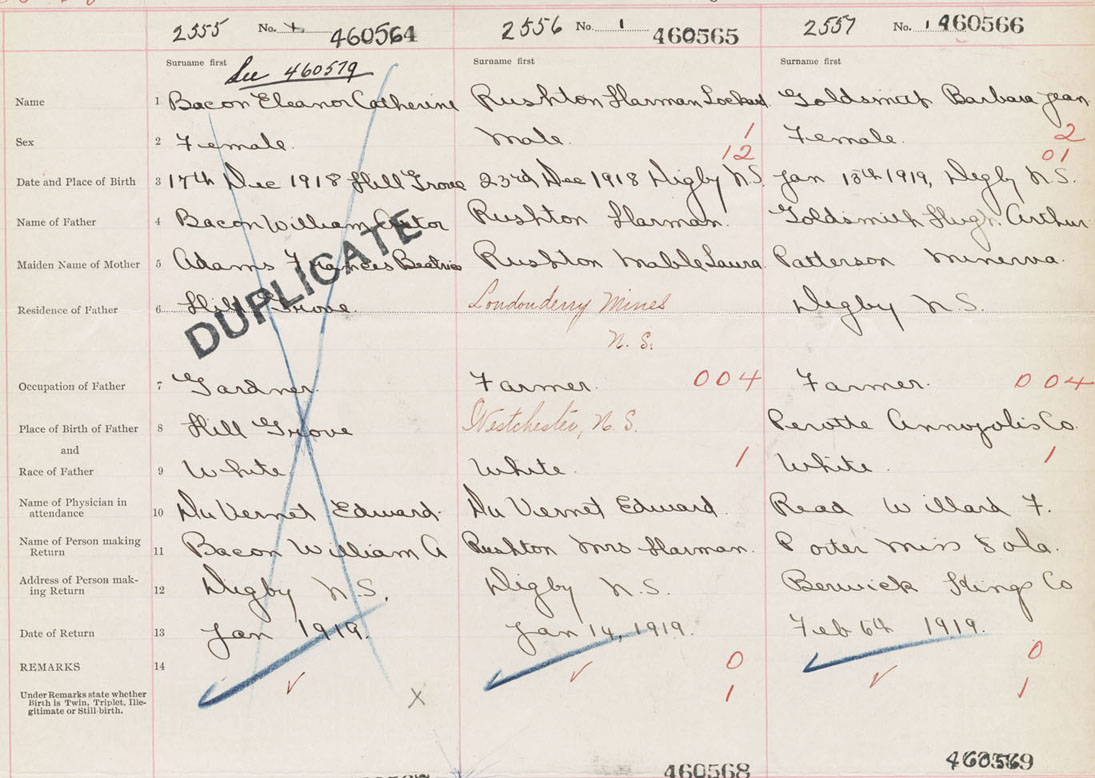 2555 No. 460564 2556 No. 1 460565 2557 No. 1 460566
Surname first Surname first Surname first
See 460579
Name 1 Bacon Eleanor Catherine Rushton Harman Lockart Goldsmith Barbara Jean
Sex 2 Female. Male. 1 Female. 2
12 01
Date and Place of Birth 3 17th Dec 1918 Hill Grove 23rd Dec 1918 Digby N.S. Jan 18th 1919, Digby N.S.
Name of Father 4 Bacon William Rushton Harman. Goldsmith Hugh Arthur
Maiden Name of Mother 5 Adams Frances Beatrice Rushton Mable Laura Patterson Minerva.
Residence of Father 6 Hill Grove. Londonderry Mines Digby N.S.
N.S.
DUPLICATE
Occupation of Father 7 Gardner. Farmer. 004 Farmer. 004
Place of Birth of Father 8 Hill Grove Westchester, N.S. Perotte Annopolis Co.
and
Race of Father 9 White. White. 1 White. 1
Name of Physician in
attendance 10 Du Vernet Edward. Du Vernet Edward. Read Willard F.
Name of Person making
Return 11 Bacon William A Rushton Mrs Harman. Porter Miss Lola.
Address of Person mak-
ing Return 12 Digby N.S. Digby N.S. Berwick Kings Co
Date of Return 13 Jan 1919. Jan 14, 1919. Feb 6th 1919.
REMARKS 14 0 0
Under Remarks state whether
Birth is Twin, Triplet, Ille-
gitimate or Still-birth. X 1 1
460568 460569